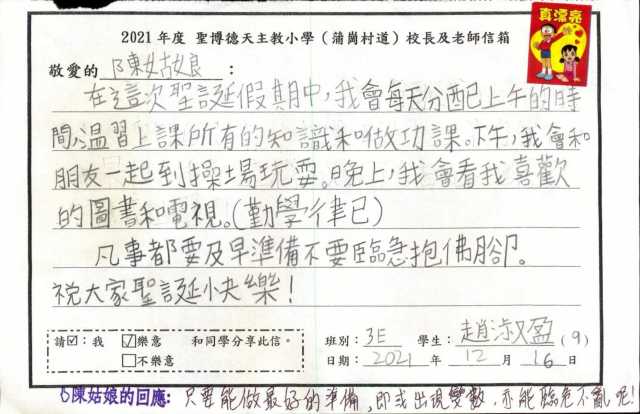 2021 年度 聖博德天主教小學（蒲崗村道）校長及老師信箱
真漂亮
敬愛的 陳姑娘 ：
在這次聖誕假期中，我會每天分配上午的時
間，溫習上課所有的知識和做功課。下午，我會和
朋友一起到操場玩耍。晚上，我會看我喜歡
的圖書和電視。(勤學律已)
凡事都要及早準備不要臨急抱佛腳。
祝大家聖誕快樂！
請☑：我 ☑樂意 和同學分享此信。
□不樂意
班別： 3E 學生： 趙淑盈 (9)
日期： 2021 年 12 月 16 日
陳姑娘的回應: 只要能做最好的準備，即或出現變數，亦能臨危不亂呢!